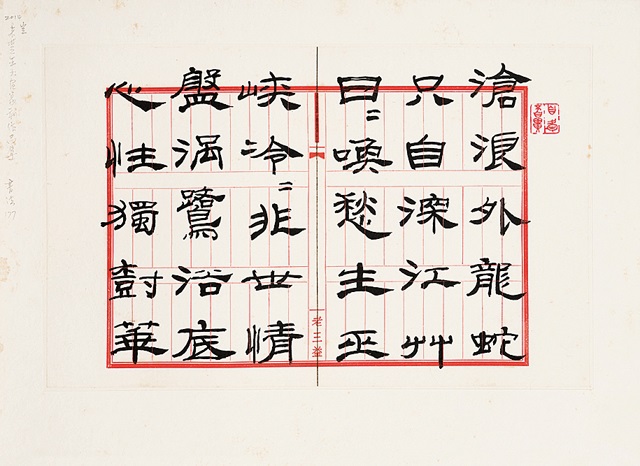 滄浪外龍蛇
只自深江艸
日〻喚愁生巫
峽冷〻非世情
盤渦鷺浴底
心性獨尌華
老三益
2010